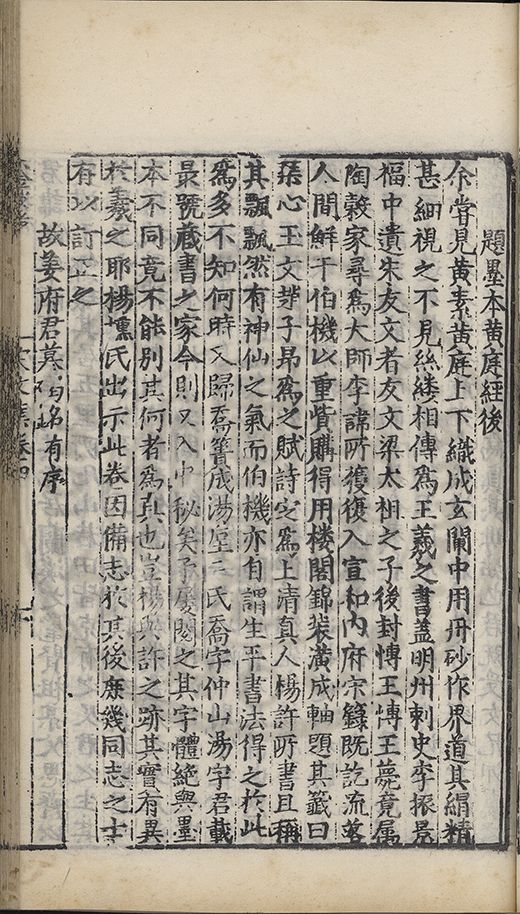 題墨本黃庭經後
余嘗見黃素黃庭上下織成玄闌中用丹砂作界道其絹精
甚細視之不見絲縷相傳爲王羲之書蓋明州刺史李振景
福中遺朱友文者友文梁太祖之子後封愽王愽王薨竟屬
陶糓家㝷爲大師李諱所獲復入宣和內府宋籙既訖流落
人間鮮于伯機以重貲購得用楼閣錦装潢成軸題其籖曰
琹心玉文趙子昂爲之賦詩定爲上清真人楊許所書且稱
其飄飄然有神仙之氣而伯機亦自謂生平書法得之於此
爲多不知何時又歸喬簣成湯垕二氏喬字仲山湯字君載
最號蔵書之家今則又入中秘矣予屢閱之其字體絶與墨
本不同竟不能别其何者爲真也豈楊與許之跡其實有異
於羲之耶楊氏出示此卷因備志於其後庶幾同志之士
有以訂正之
故姜府君墓碣銘有序